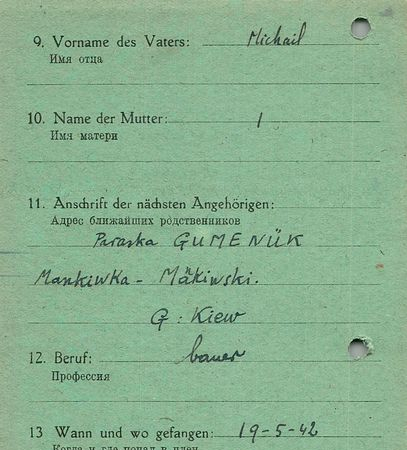 9. Vorname des Vaters: Michail
Имя отца
10. Name der Mutter: /
Имя матери
11. Anschrift der nächsten Angehörigen:
Адрес ближайших родственников
Paraska GUMENÜK
Mankiwka - Mäkiwski.
G: Kiew
12. Beruf: bauer
Профессия
13 Wann und wo gefangen: 19-5-42
Когда и где попал в плен